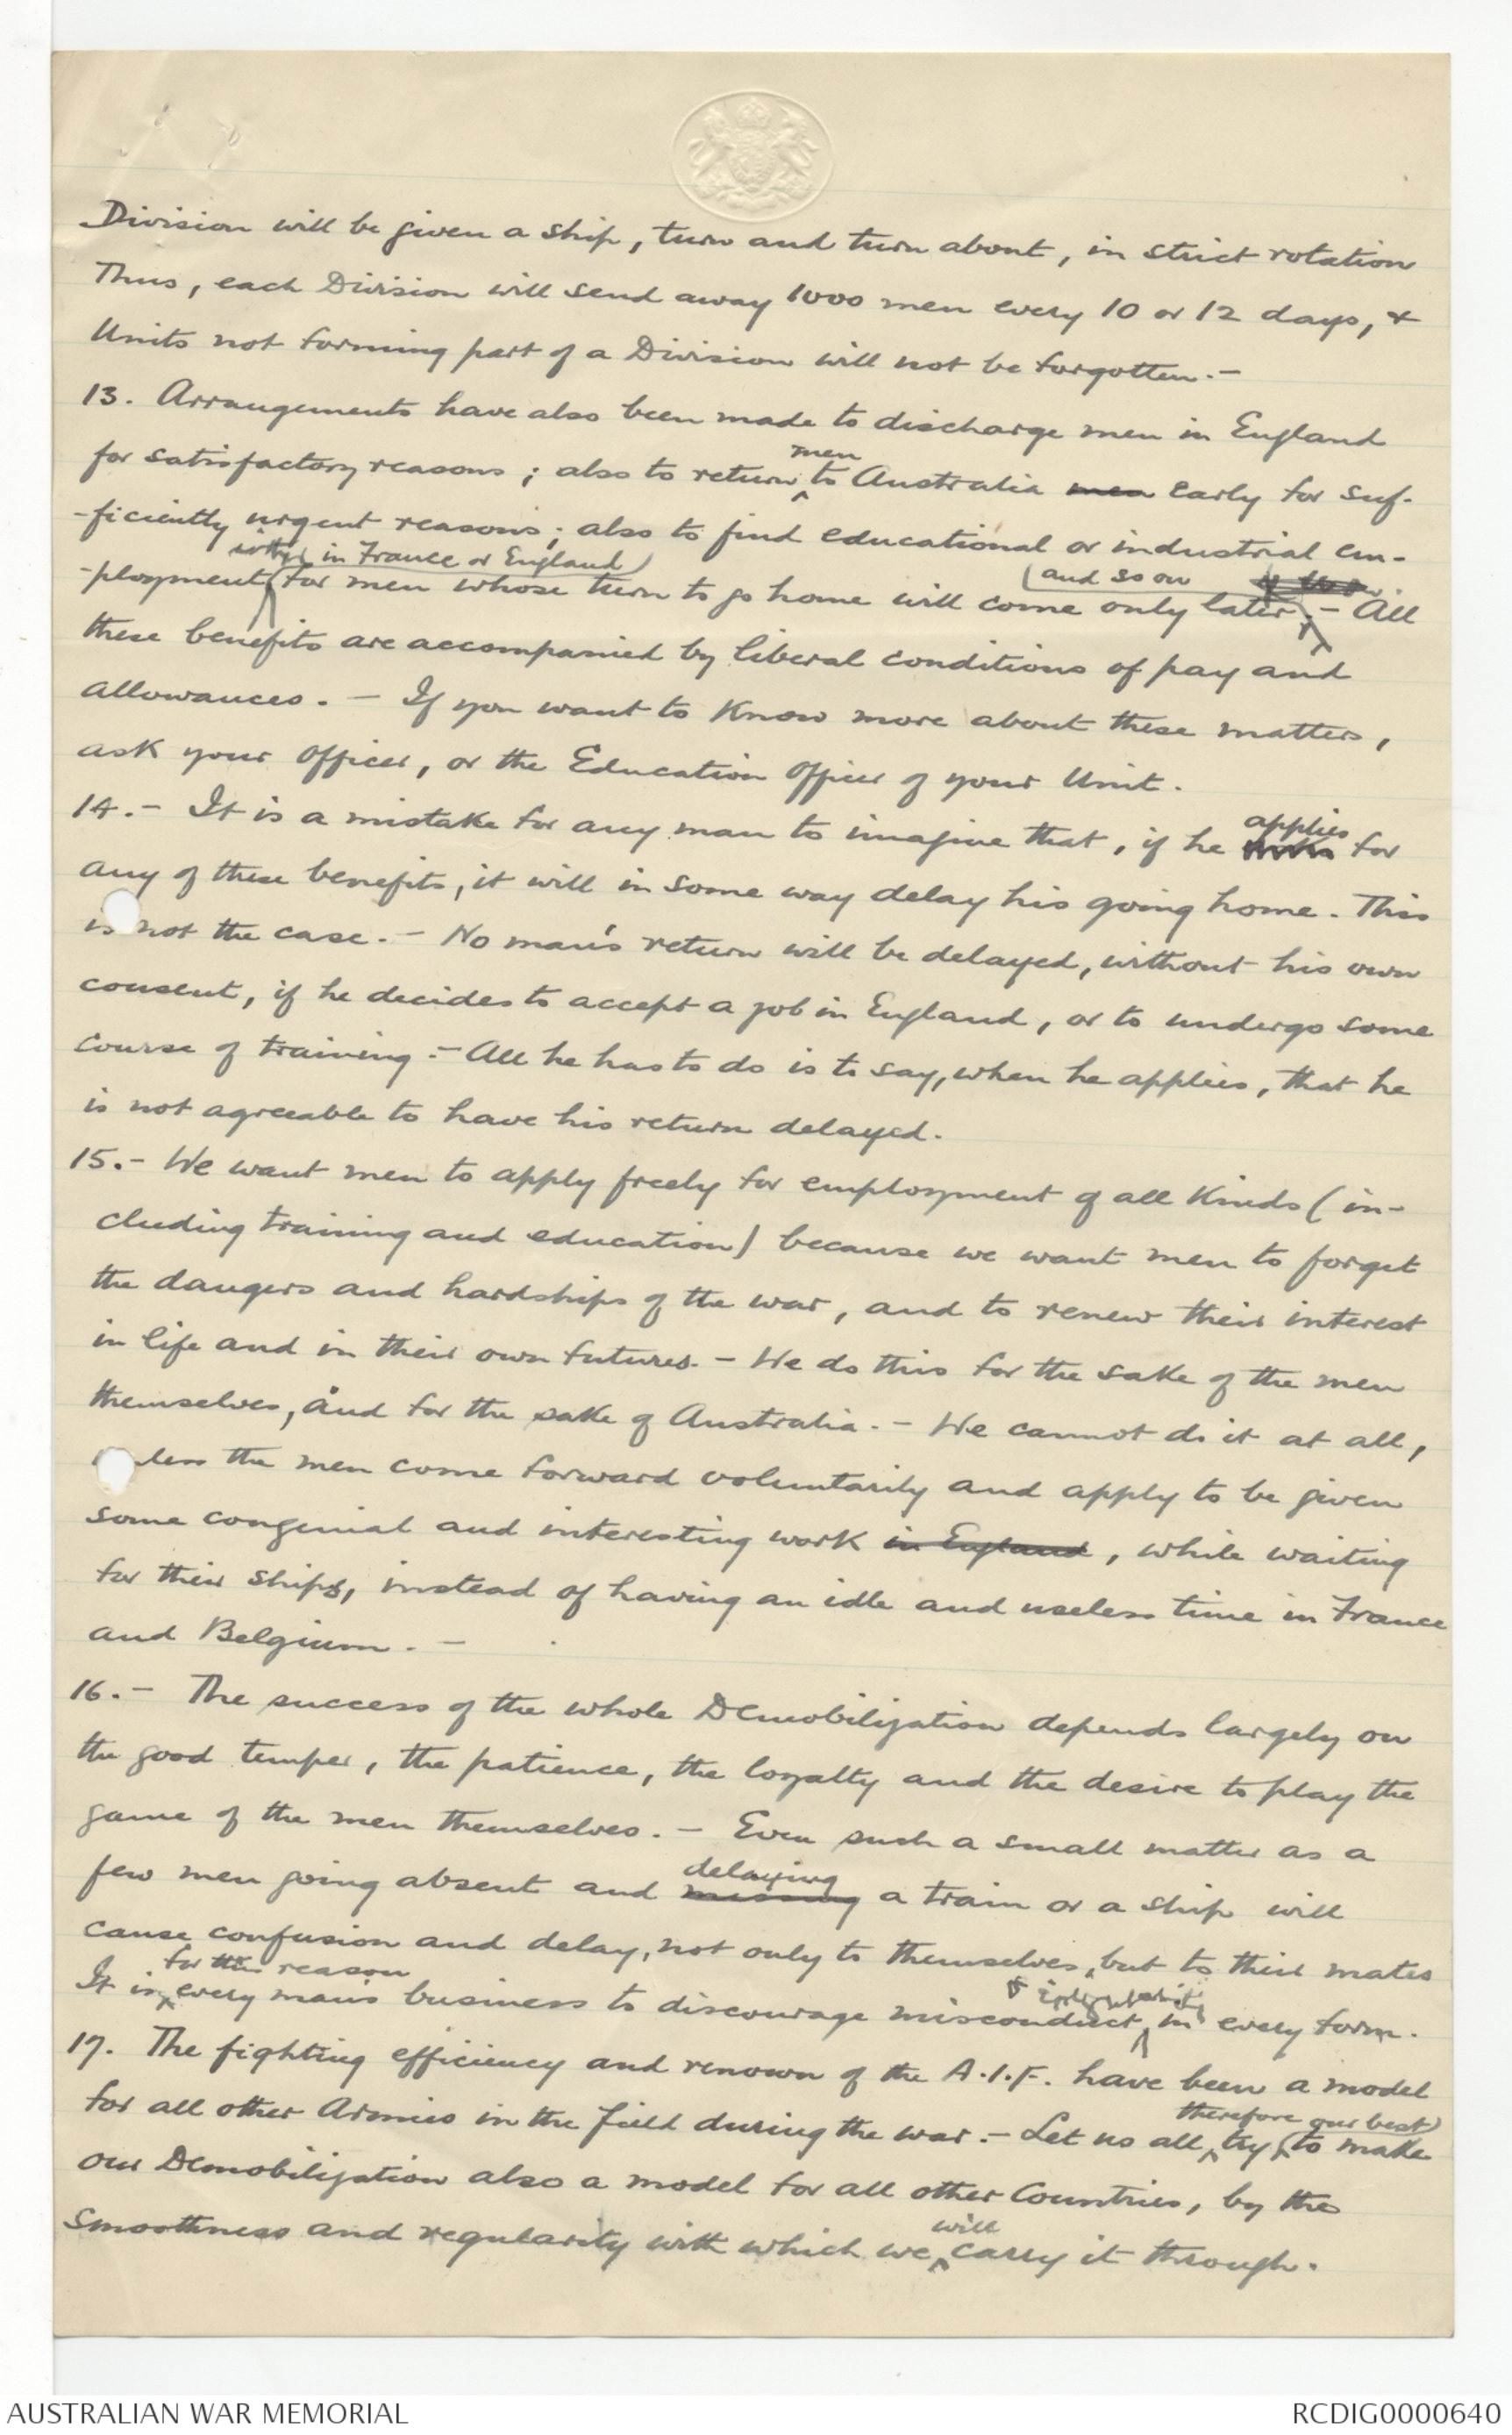 Division will be given a ship, turn and turn about, in strict rotation
Thus, each Division will send away 1000 men every 10 or 12 days, &
Units not forming part of a Division will not be forgotten. -
13. Arrangements have also been made to discharge men in England
men
for satisfactory reasons ; also to return to Australia men early for suf-
-ficiently urgent reasons; also to find educational or industrial em-
either in France or England
and so on
-ployment for men whose turn to go home will come only later. - All
these benefits are accompanied by liberal conditions of pay and
allowances. - If you want to know more about these matters,
ask your officer, or the Education officer of your Unit.
14. - It is a mistake for any man to imagine that, if he applies for
any of these benefits, it will in some way delay his going home. This
is not the case. - No man's return will be delayed, without his own
consent, if he decides to accept a job in England, or to undergo some
course of training. - All he has to do is to say, when he applies, that he
is not agreeable to have his return delayed.
15. - We want men to apply freely for employment of all kinds (in-
cluding training and education) because we want men to forget
the dangers and hardships of the war, and to renew their interest
in life and in their own futures. - We do this for the sake of the men
themselves, and for the sake of Australia. - We cannot do it at all,
unless the men come forward voluntarily and apply to be given
some congenial and interesting work in England, while waiting
for their ships, instead of having an idle and useless time in France
and Belgium. -
16. - The success of the whole Demobilization depends largely on
the good temper, the patience, the loyalty and the desire to play the
game of the men themselves. - Even such a small matter as a
delaying
few men going absent and missing a train or a ship will
cause confusion and delay, not only to themselves, but to their mates
for this reason
&
It is every man's business to discourage misconduct in every form.
17. The fighting efficiency and renown of the A.I.F. have been a model
therefore our best
for all other Armies in the field during the war. - Let us all try to make
our Demobilization also a model for all other Countries, by the
will
smoothness and regularity with which we carry it through.
AUSTRALIAN WAR MEMORIAL
RCDIG0000640